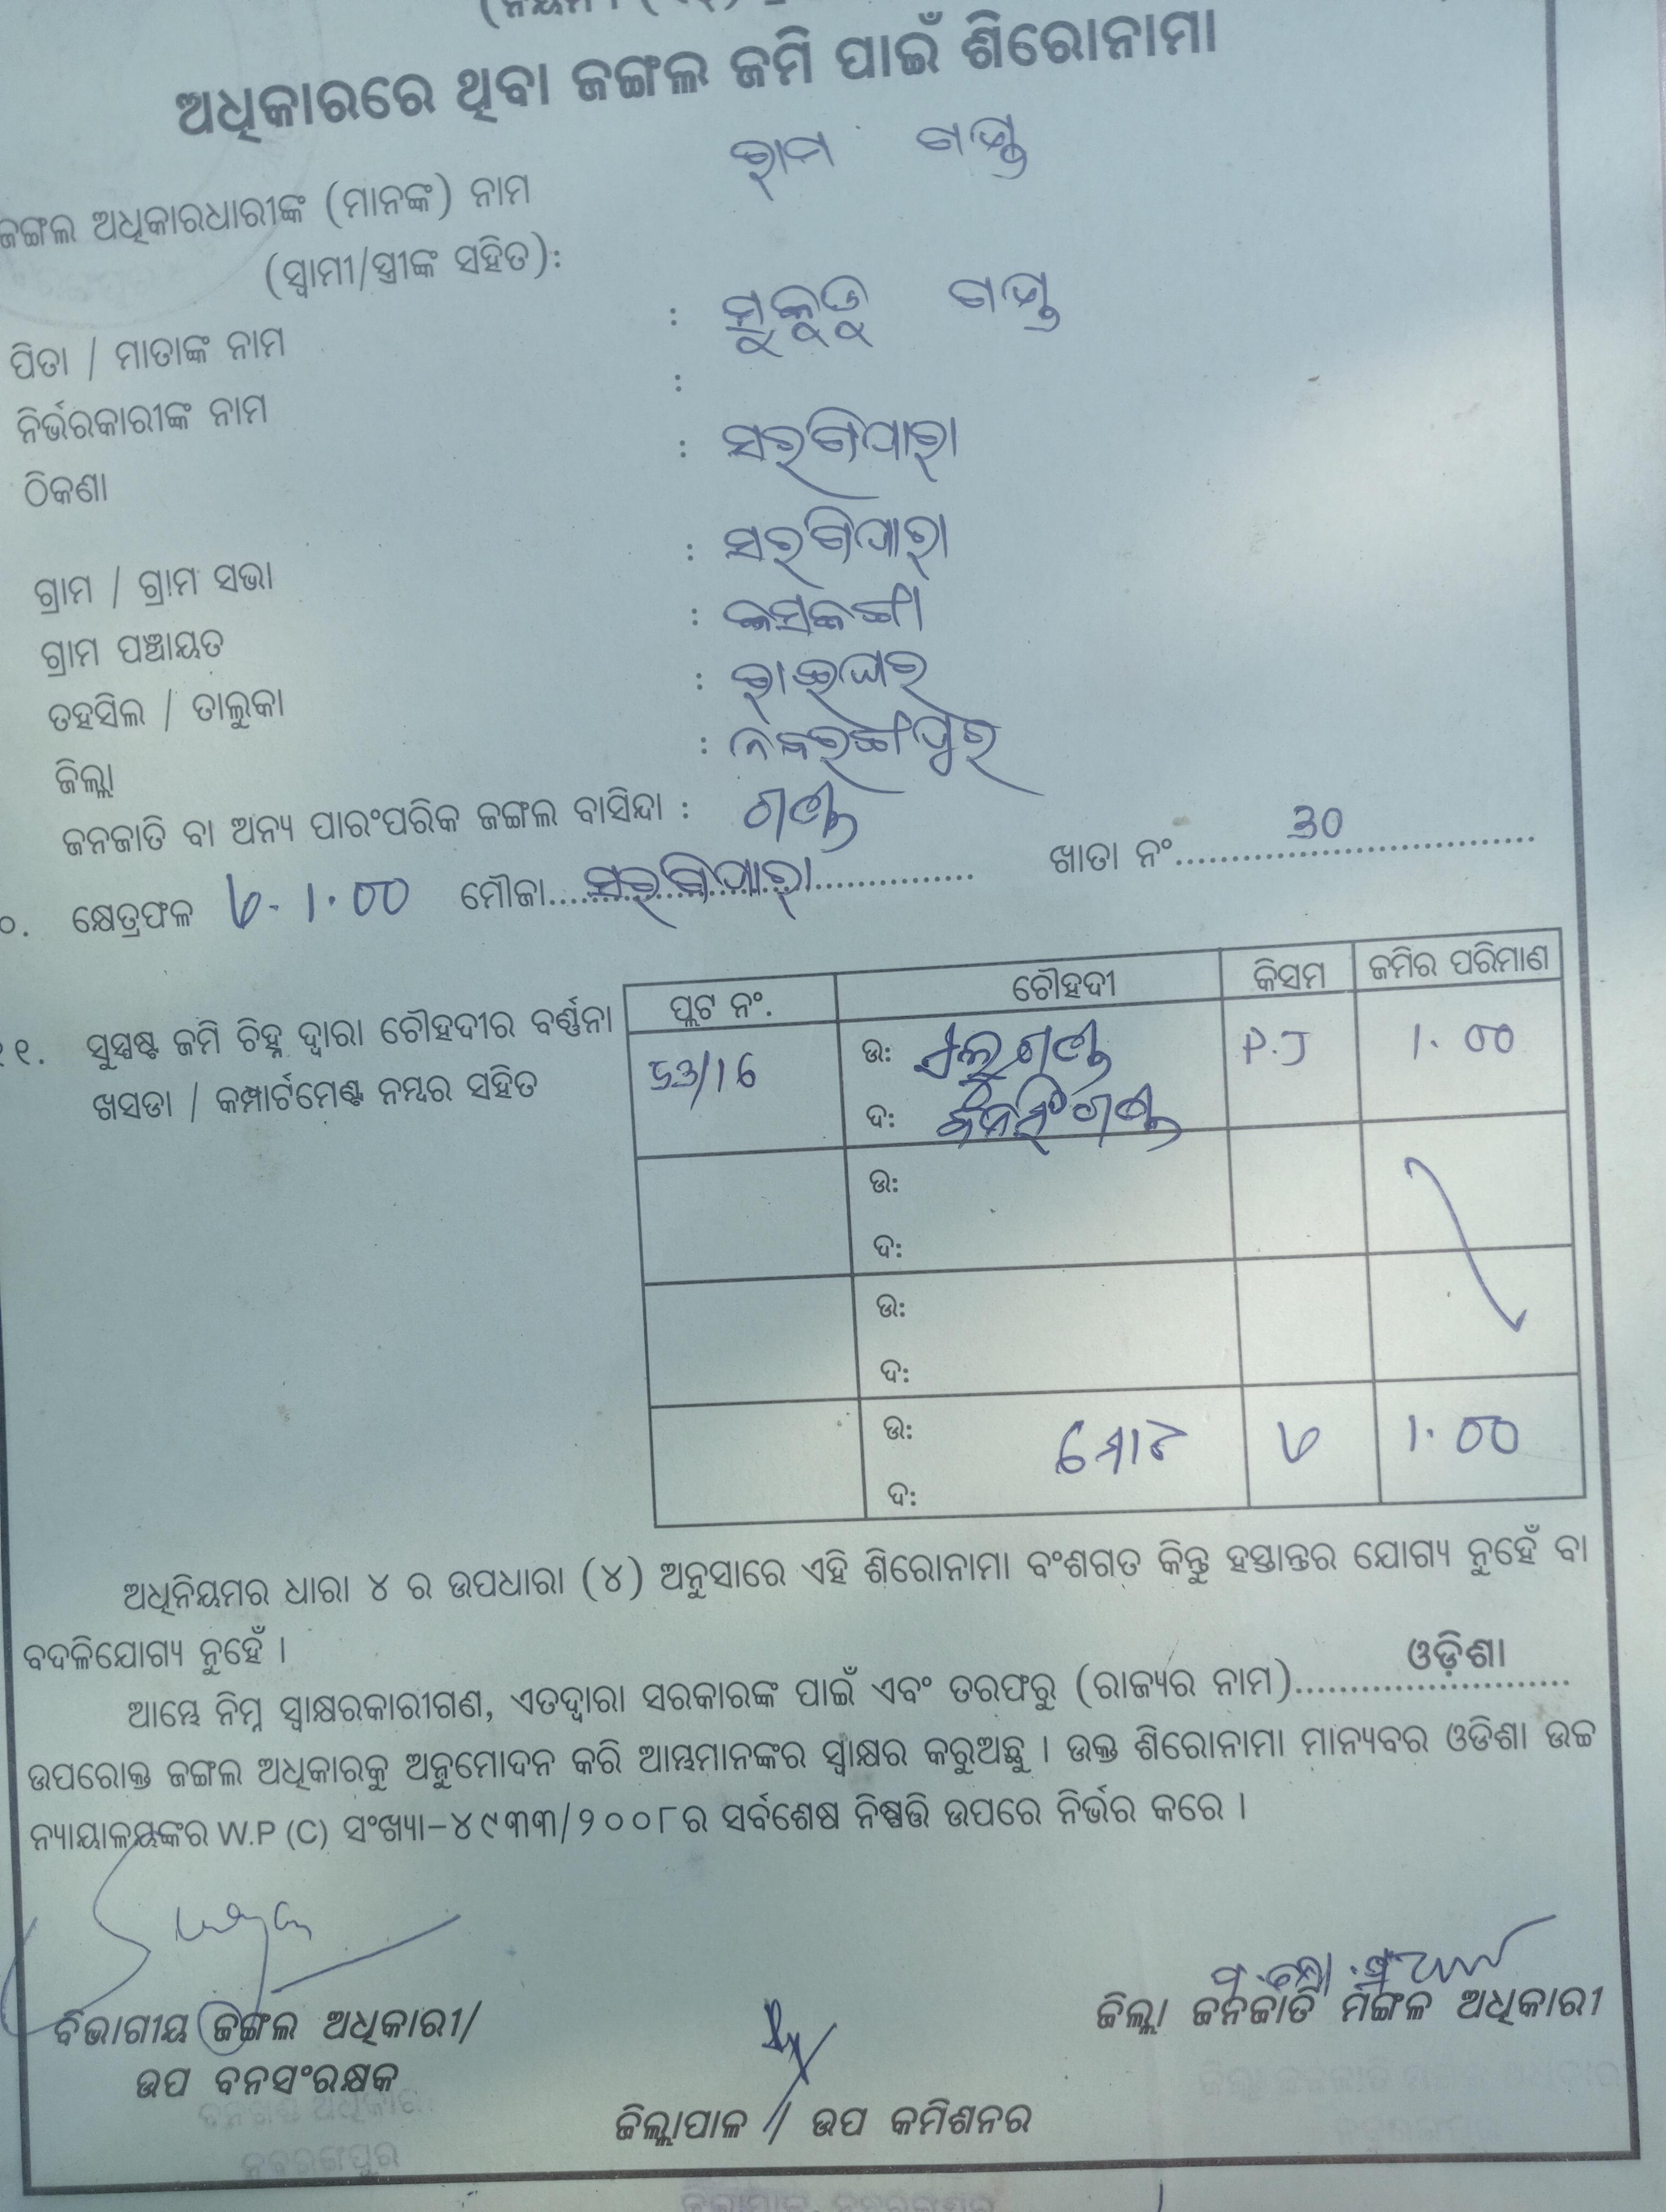 ଅଧିକାରରେ ଥିବା ଜଙ୍ଗଲ ଜମି ପାଇଁ ଶିରୋନାମା
ଜଙ୍ଗଲ ଅଧିକାରଧାରୀଙ୍କ (ମାନଙ୍କ) ନାମ ରାମ ଗଣ୍ଡ
(ସ୍ୱାମୀ/ସ୍ତ୍ରୀଙ୍କ ସହିତ):
ପିତା / ମାତାଙ୍କ ନାମ : ଗଣ୍ଡ
ନିର୍ଭରକାରୀଙ୍କ ନାମ :
ଠିକଣା : ସରଗିପାରା
ଗ୍ରାମ / ଗ୍ରାମ ସଭା : ସରଗିପାରା
ଗ୍ରାମ ପଞ୍ଚାୟତ :
ତହସିଲ / ତାଲୁକା : ରାଇଘର
ଜିଲ୍ଲା : ନବରଙ୍ଗପୁର
ଜନଜାତି ବା ଅନ୍ୟ ପାରଂପରିକ ଜଙ୍ଗଲ ବାସିନ୍ଦା : ଗଣ୍ଡ
୦. କ୍ଷେତ୍ରଫଳ 1.00 ମୌଜା ସରଗିପାରା ଖାତା ନଂ 30
୧୧. ସୁସ୍ପଷ୍ଟ ଜମି ଚିହ୍ନ ଦ୍ୱାରା ଚୌହଦୀର ବର୍ଣ୍ଣନା
ଖସଡା / କମ୍ପାର୍ଟମେଣ୍ଟ ନମ୍ବର ସହିତ
ପ୍ଲଟ ନଂ. ଚୌହଦୀ କିସମ ଜମିର ପରିମାଣ
53/16 ଉ: ଗଣ୍ଡ P.J 1.00
ଦ: ଗଣ୍ଡ
ଉ:
ଦ:
ଉ:
ଦ:
ଉ: ମୋଟ 1.00
ଦ:
ଅଧିନିୟମର ଧାରା ୪ ର ଉପଧାରା (୪) ଅନୁସାରେ ଏହି ଶିରୋନାମା ବଂଶଗତ କିନ୍ତୁ ହସ୍ତାନ୍ତର ଯୋଗ୍ୟ ନୁହେଁ ବା
ବଦଳିଯୋଗ୍ୟ ନୁହେଁ ।
ଆମ୍ଭେ ନିମ୍ନ ସ୍ୱାକ୍ଷରକାରୀଗଣ, ଏତଦ୍ୱାରା ସରକାରଙ୍କ ପାଇଁ ଏବଂ ତରଫରୁ (ରାଜ୍ୟର ନାମ) ଓଡ଼ିଶା
ଉପରୋକ୍ତ ଜଙ୍ଗଲ ଅଧିକାରକୁ ଅନୁମୋଦନ କରି ଆମ୍ଭମାନଙ୍କର ସ୍ୱାକ୍ଷର କରୁଅଛୁ । ଉକ୍ତ ଶିରୋନାମା ମାନ୍ୟବର ଓଡିଶା ଉଚ୍ଚ
ନ୍ୟାୟାଳୟଙ୍କର W.P (C) ସଂଖ୍ୟା-୪୯୩୩/୨୦୦୮ର ସର୍ବଶେଷ ନିଷ୍ପତ୍ତି ଉପରେ ନିର୍ଭର କରେ ।
ବିଭାଗୀୟ ଜଙ୍ଗଲ ଅଧିକାରୀ/
ଉପ ବନସଂରକ୍ଷକ
ଜିଲ୍ଲା ଜନଜାତି ମଙ୍ଗଳ ଅଧିକାରୀ
ଜିଲ୍ଲାପାଳ / ଉପ କମିଶନର